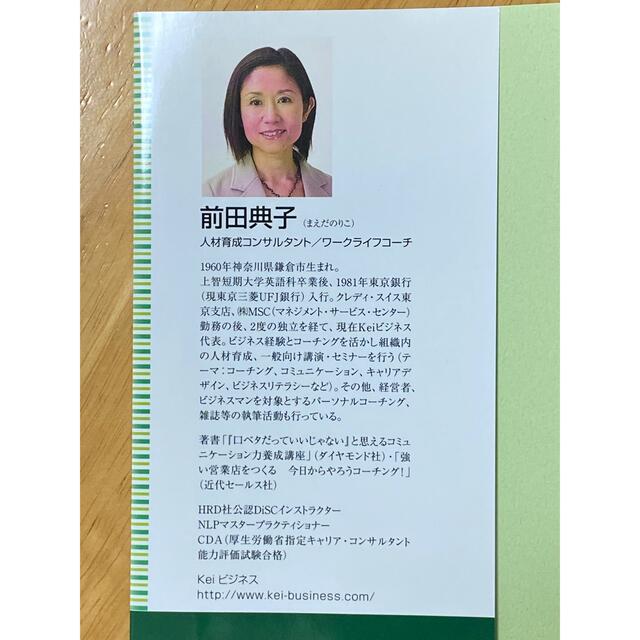 前田典子（まえだのりこ）
人材育成コンサルタント／ワークライフコーチ
1960年神奈川県鎌倉市生まれ。
上智短期大学英語科卒業後、1981年東京銀行
（現東京三菱UFJ銀行）入行。クレディ・スイス東
京支店、㈱MSC（マネジメント・サービス・センター）
勤務の後、2度の独立を経て、現在Keiビジネス
代表。ビジネス経験とコーチングを活かし組織内
の人材育成、一般向け講演・セミナーを行う（テ
ーマ：コーチング、コミュニケーション、キャリアデ
ザイン、ビジネスリテラシーなど）。その他、経営者、
ビジネスマンを対象とするパーソナルコーチング、
雑誌等の執筆活動も行っている。
著書「『口ベタだっていいじゃない』と思えるコミュ
ニケーション力養成講座」（ダイヤモンド社）・「強
い営業店をつくる　今日からやろうコーチング！」
（近代セールス社）
HRD社公認DiSCインストラクター
NLPマスタープラクティショナー
CDA（厚生労働省指定キャリア・コンサルタント
能力評価試験合格）
Kei ビジネス
http://www.kei-business.com/